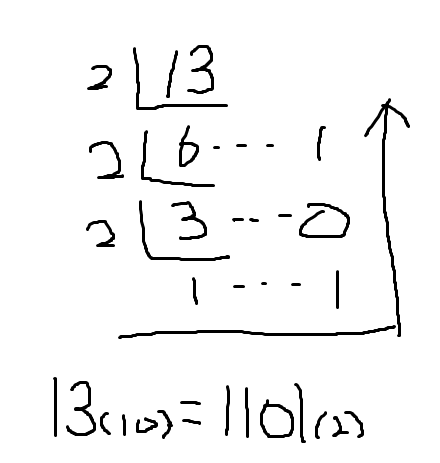 2 13
2 6 --- 1
2 3 --- 0
1 --- 1
13(10)=1101(2)